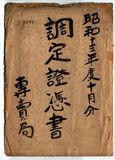 昭和十三年度十月分
調定證憑書
專賣局